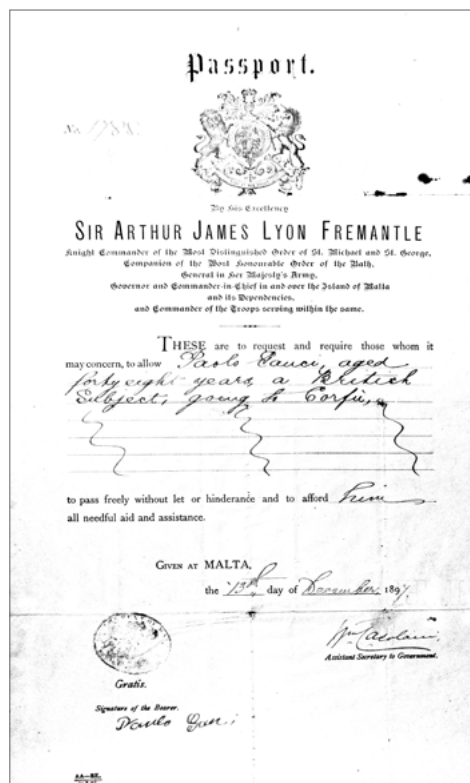 Passport.
No.
By His Excellency
SIR ARTHUR JAMES LYON FREMANTLE
Knight Commander of the Most Distinguished Order of St. Michael and St. George,
Companion of the Most Honourable Order of the Bath,
General in Her Majesty's Army,
Governor and Commander-in-Chief in and over the Island of Malta
and its Dependencies,
and Commander of the Troops serving within the same.
THESE are to request and require those whom it
may concern, to allow Paolo Gauci, aged
forty eight years, a British
Subject, going to Corfu,
to pass freely without let or hinderance and to afford him
all needful aid and assistance.
GIVEN AT MALTA,
the 13th day of December 1897.
Assistant Secretary to Government.
Gratis.
Signature of the Bearer.